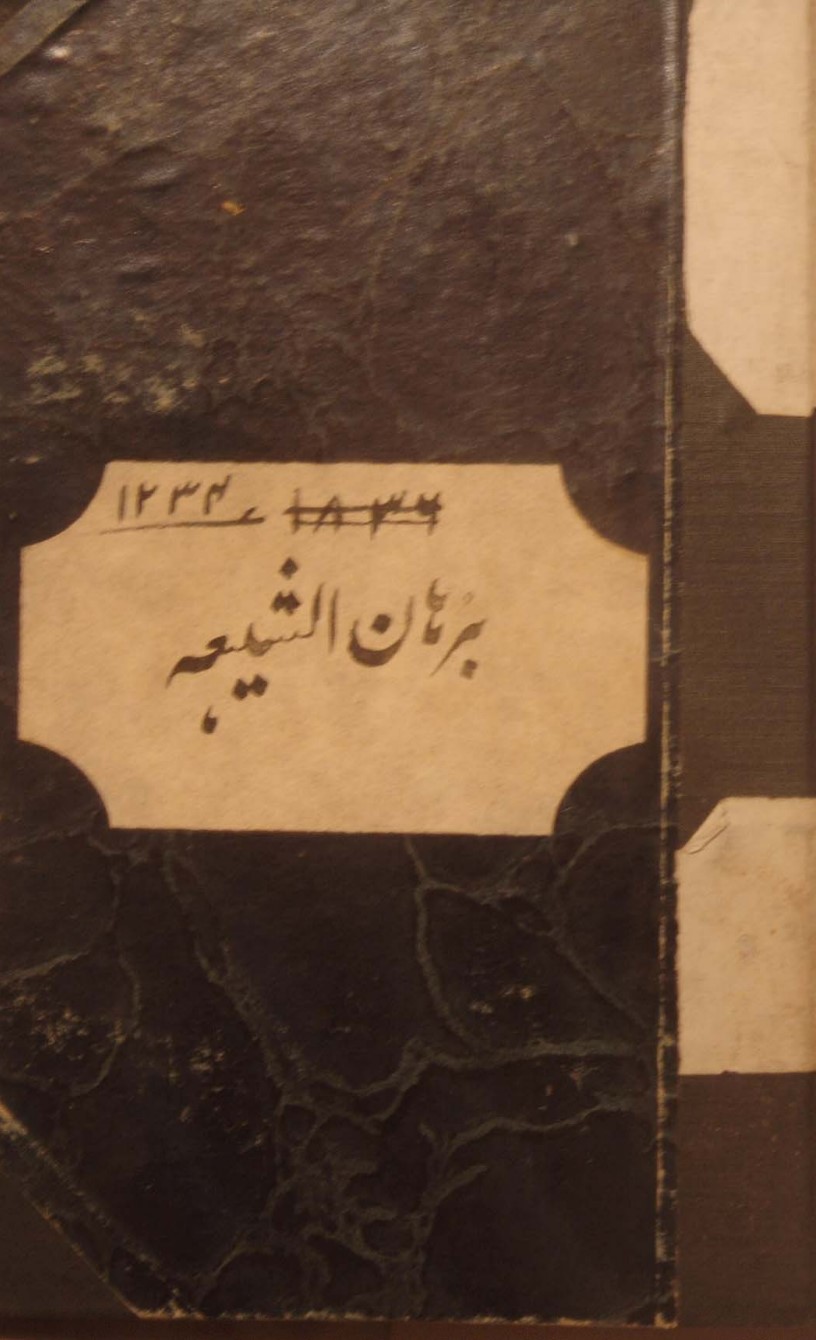 ۱۸۳۲ ۱۲۳۴
برهان الشیعه